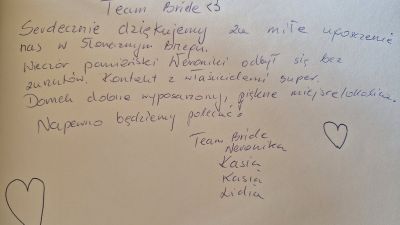 Team Bride <3
Serdecznie dziękujemy za miłe ugoszczenie
nas w Słonecznym Brzegu.
Wieczór panieński Weroniki odbył się bez
zarzutów. Kontakt z właścicielami super.
Domek dobrze wyposarzony, piękne miejsce/okolica.
Napewno będziemy polecać :
Team Bride
Weronika
Kasia
Kasia
Lidia